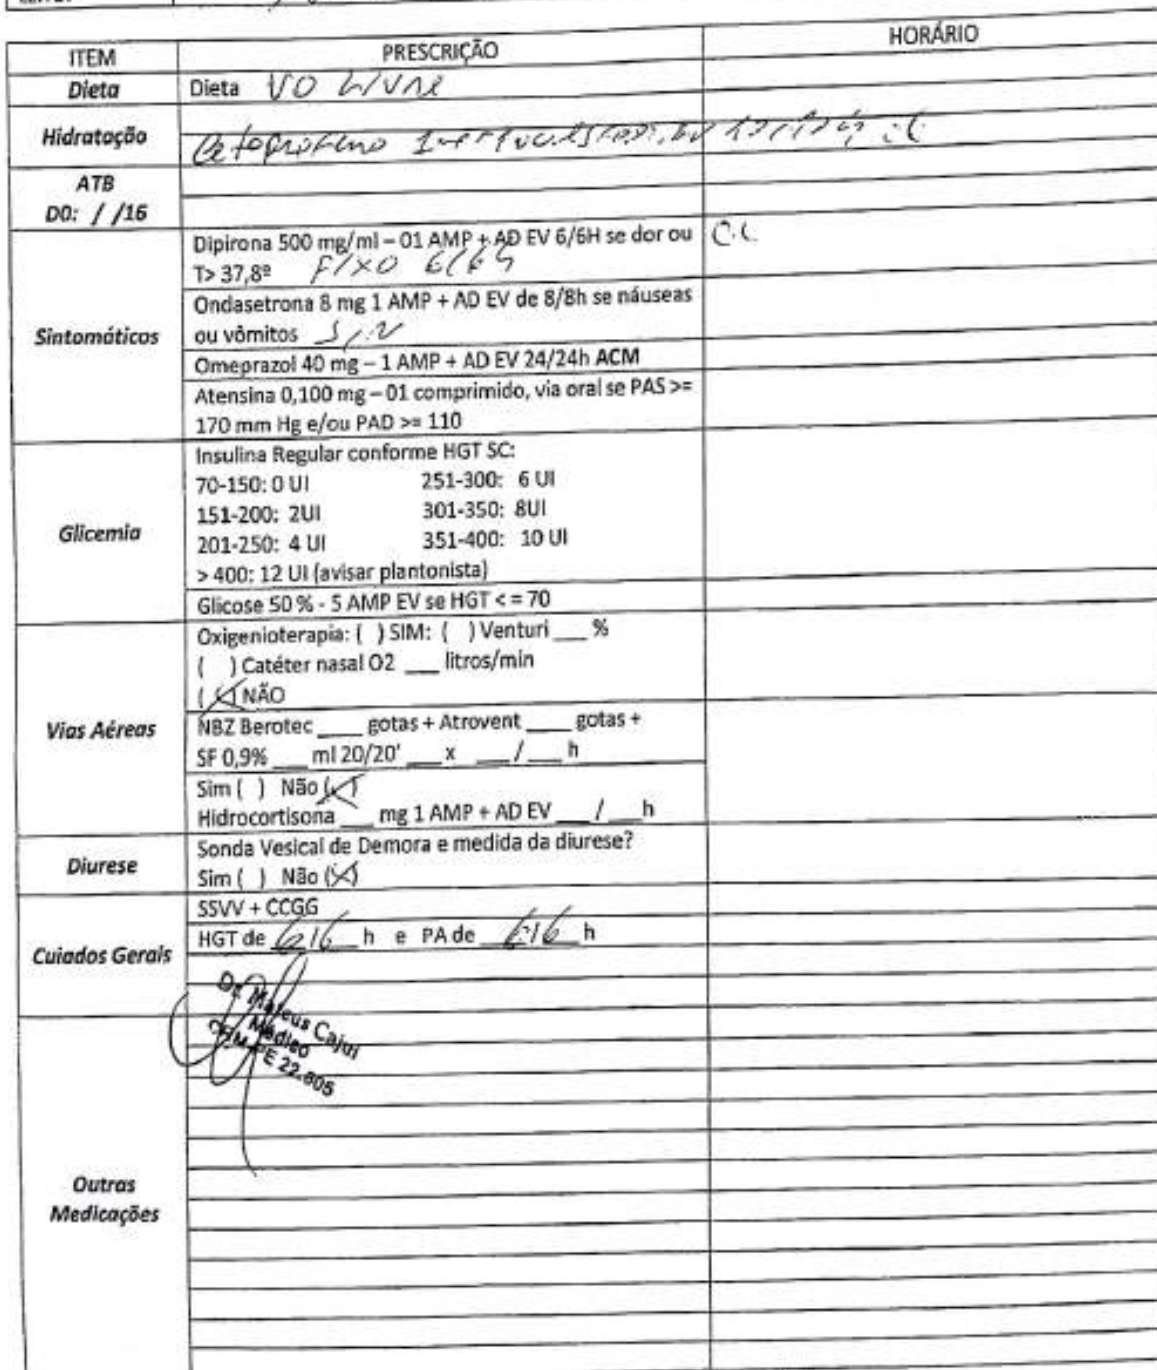 ITEM PRESCRIÇÃO HORÁRIO
Dieta Dieta VO LIVRE
Hidratação
Cetoprofeno
ATB
D0: / /16
Sintomáticos
Dipirona 500 mg/ml – 01 AMP + AD EV 6/6H se dor ou
T> 37,8º FIXO 6/6h
Ondasetrona 8 mg 1 AMP + AD EV de 8/8h se náuseas
ou vômitos S/N
Omeprazol 40 mg – 1 AMP + AD EV 24/24h ACM
Atensina 0,100 mg – 01 comprimido, via oral se PAS >=
170 mm Hg e/ou PAD >= 110
Glicemia
Insulina Regular conforme HGT SC:
70-150: 0 UI 251-300: 6 UI
151-200: 2UI 301-350: 8UI
201-250: 4 UI 351-400: 10 UI
> 400: 12 UI (avisar plantonista)
Glicose 50 % - 5 AMP EV se HGT < = 70
Vias Aéreas
Oxigenioterapia: ( ) SIM: ( ) Venturi ___ %
( ) Catéter nasal O2 ___ litros/min
(X) NÃO
NBZ Berotec ____ gotas + Atrovent ____ gotas +
SF 0,9% ___ ml 20/20' ___ x ___/___ h
Sim ( ) Não (X)
Hidrocortisona ___ mg 1 AMP + AD EV ___/___h
Diurese
Sonda Vesical de Demora e medida da diurese?
Sim ( ) Não (X)
Cuiados Gerais
SSVV + CCGG
HGT de 6/6 h e PA de 6/6 h
Dr. Mateus Cajui
Médico
CRM-PE 22.605
Outras
Medicações